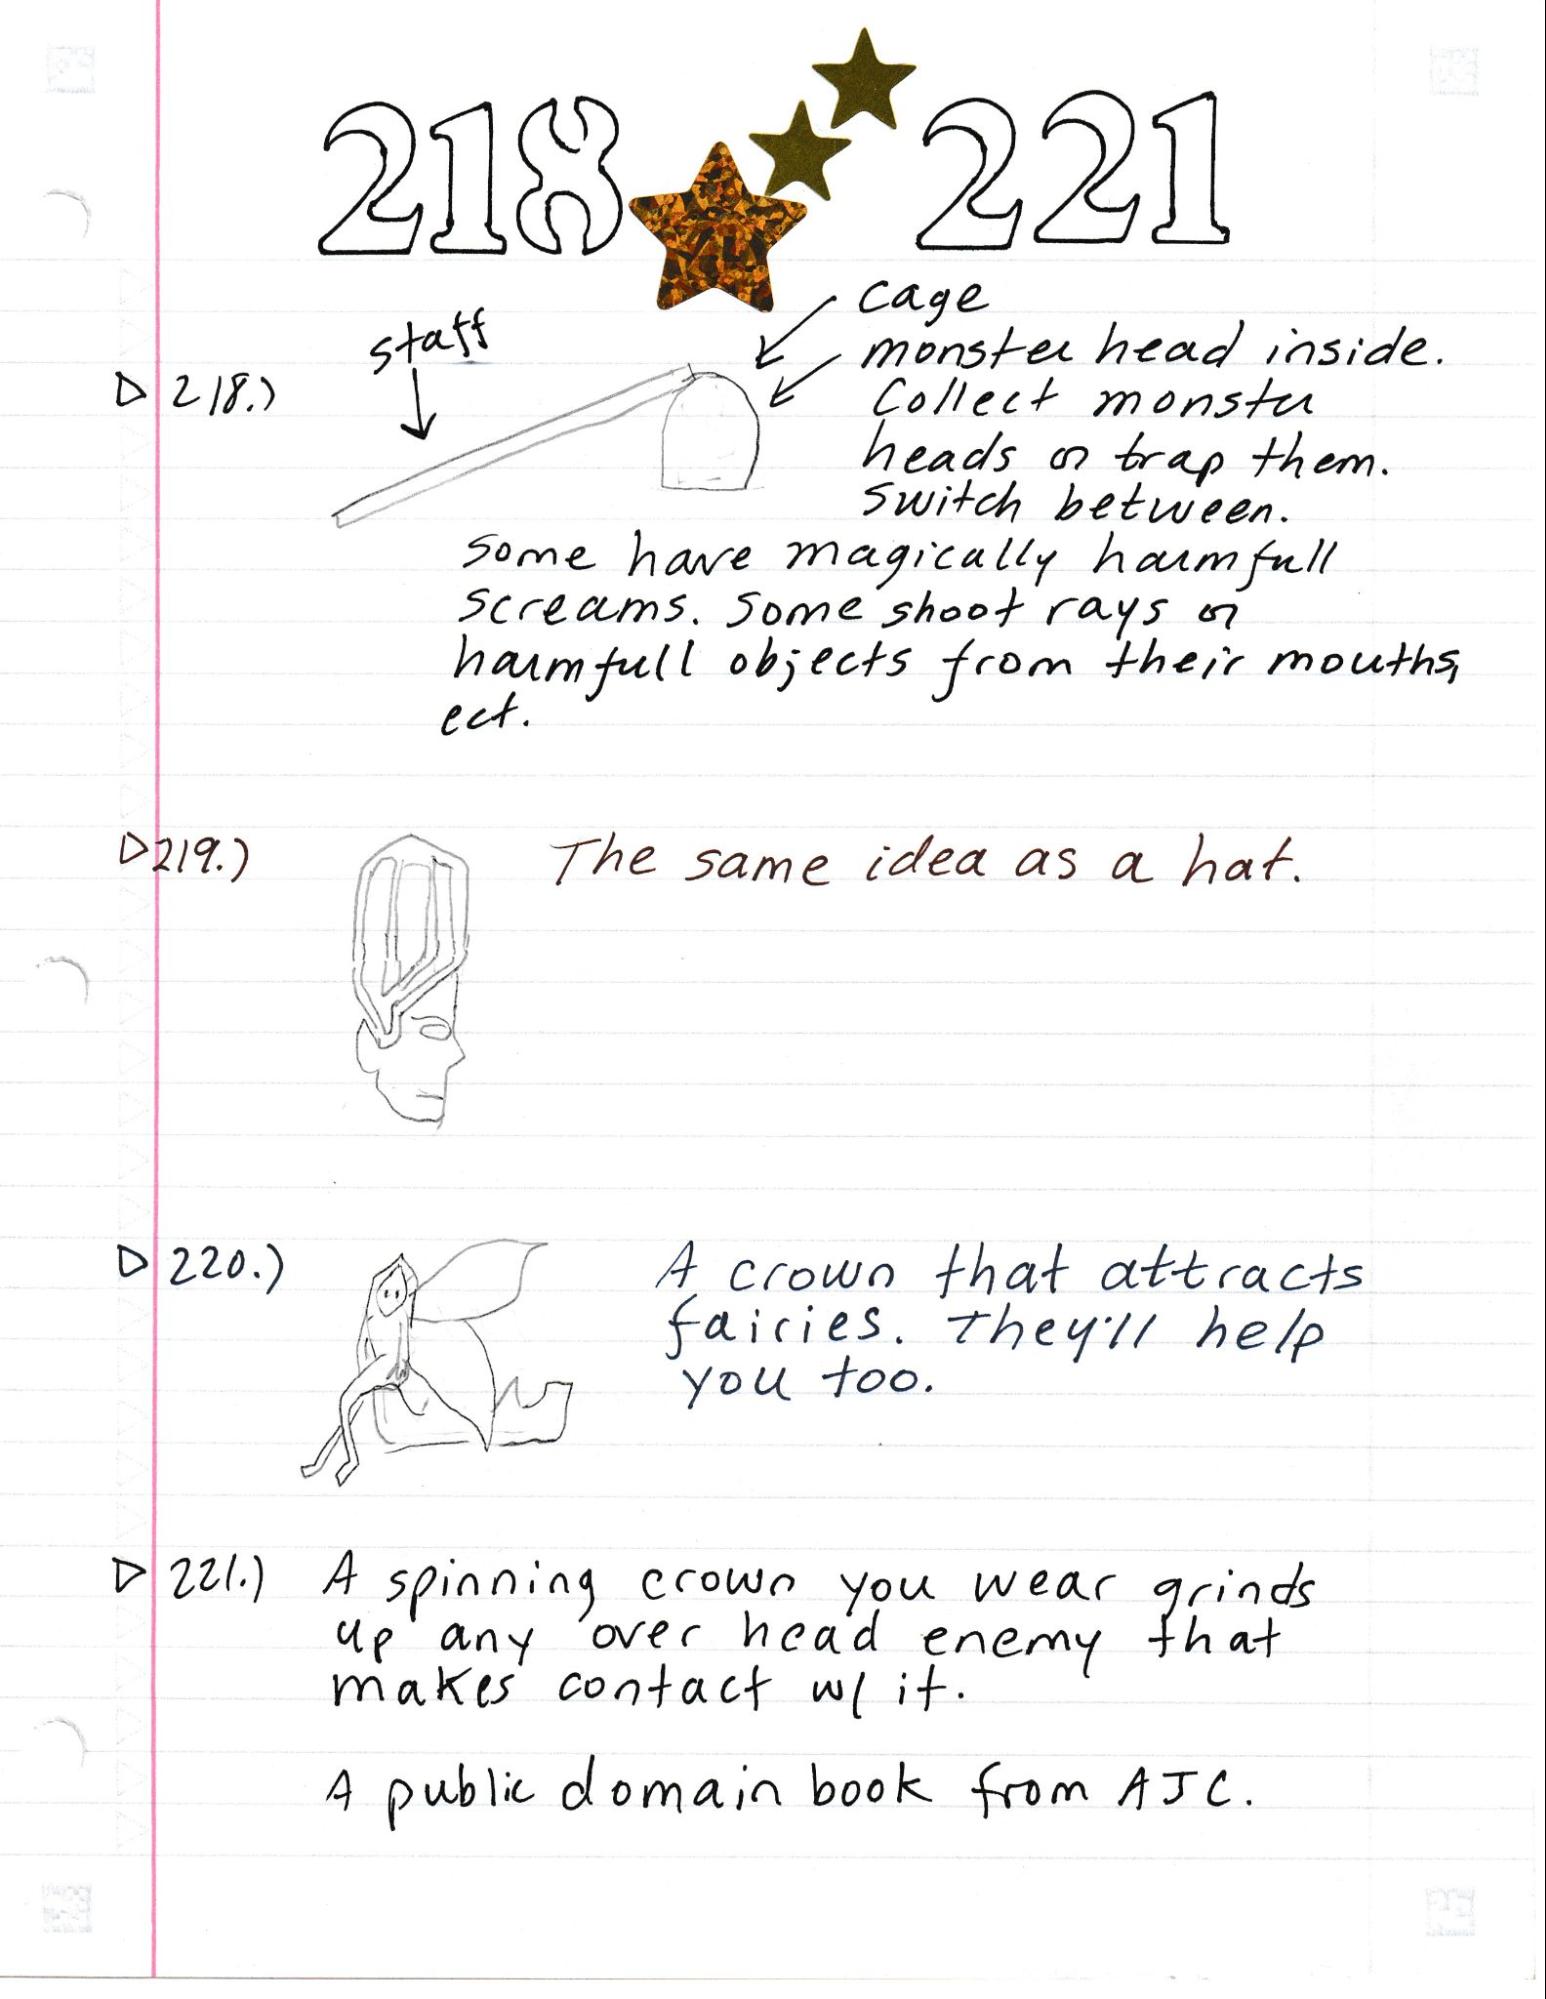 218 221
staff
cage
monster head inside.
▷ 218.)
Collect monster
heads or trap them.
Switch between.
Some have magically harmfull
screams. Some shoot rays or
harmfull objects from their mouths,
ect.
▷ 219.) The same idea as a hat.
▷ 220.) A crown that attracts
fairies. They'll help
you too.
▷ 221.) A spinning crown you wear grinds
up any over head enemy that
makes contact w/ it.
A public domain book from AJC.